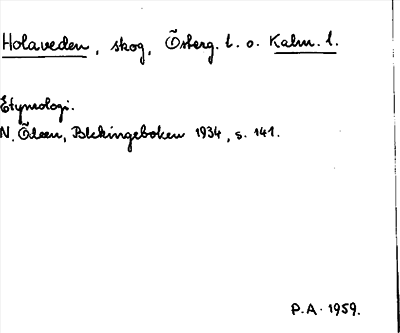 Holaveden, skog, Österg. l. o. Kalm. l.
Etymologi.
N. Olsen, Blekingeboken 1934, s. 141.
P.A. 1959.